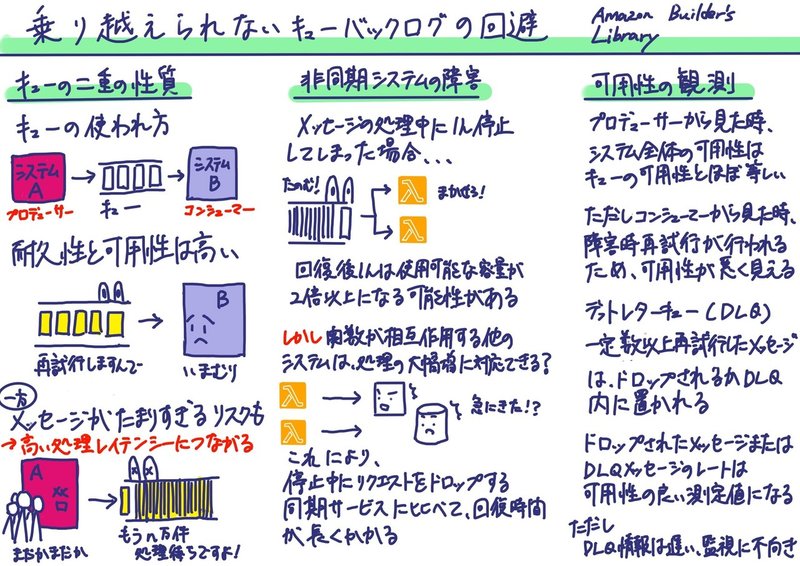 乗り越えられないキューバックログの回避
Amazon Builder's
Library
キューの二重の性質
キューの使われ方
システム
A
システム
B
プロデューサー
キュー
コンシューマー
耐久性と可用性は高い
B
再試行しますんで
いまむり
一方
メッセージがたまりすぎるリスクも
→高い処理レイテンシーにつながる
A
まだかまだか
もうn万件
処理待ちですよ!
非同期システムの障害
メッセージの処理中に1h停止
してしまった場合、、、
たのむ!
まかせろ!
λ
λ
回復後1hは使用可能な容量が
2倍以上になる可能性がある
しかし関数が相互作用する他の
システムは、処理の大幅増に対応できる?
λ
λ
急にきた!?
これにより、
停止中にリクエストをドロップする
同期サービスにくらべて、回復時間
が長くかかる
可用性の観測
プロデューサーから見た時、
システム全体の可用性は
キューの可用性とほぼ等しい
ただしコンシューマーから見た時、
障害時再試行が行われる
ため、可用性が悪く見える
デットレターキュー(DLQ)
一定数以上再試行したメッセージ
は、ドロップされるかDLQ
内に置かれる
ドロップされたメッセージまたは
DLQメッセージのレートは
可用性の良い測定値になる
ただし
DLQ情報は遅い、監視に不向き